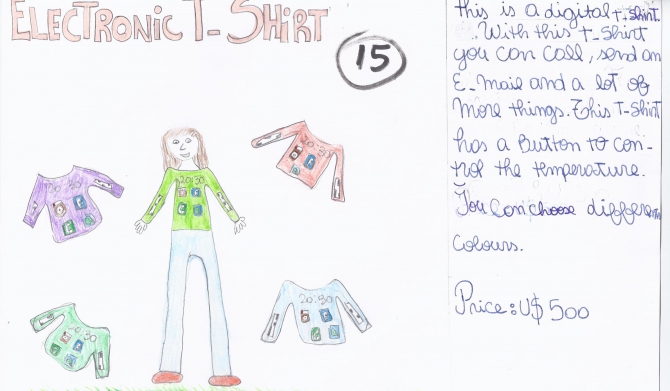 ELECTRONIC T-SHIRT
15
20:30
20:30
20:30
20:30
20:30
this is a digital t-shirt
. With this t-shirt
you can call, send an
E-mail and a lot of
more things. This T-shirt
has a Button to con-
trol the temperature.
You can choose different
colours.
Price: U$ 500